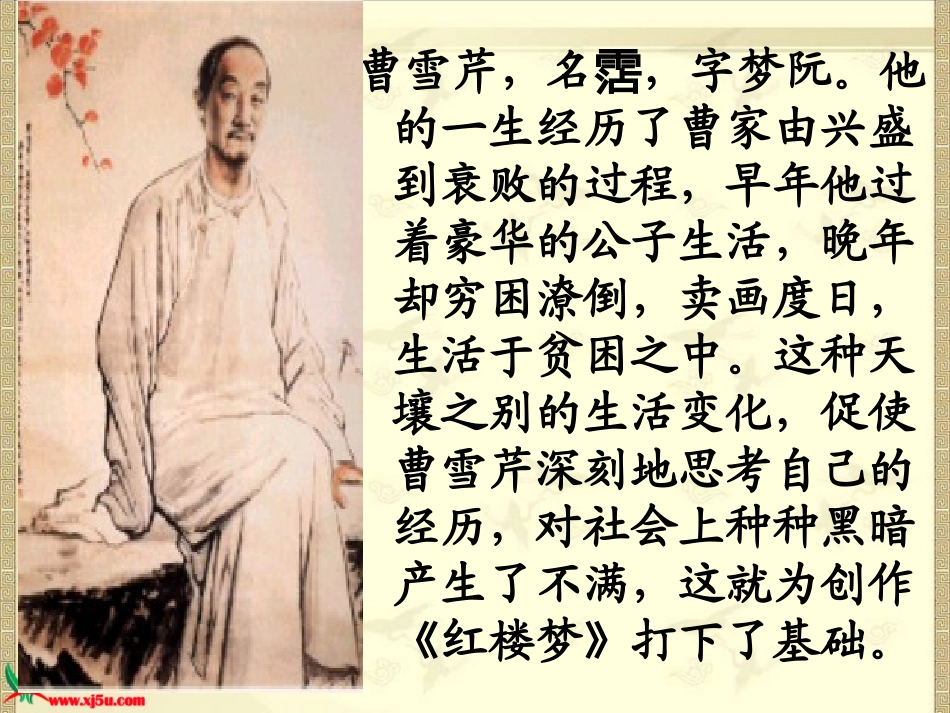 曹雪芹，名霑，字梦阮。他
的一生经历了曹家由兴盛
到衰败的过程，早年他过
着豪华的公子生活，晚年
却穷困潦倒，卖画度日，
生活于贫困之中。这种天
壤之别的生活变化，促使
曹雪芹深刻地思考自己的
经历，对社会上种种黑暗
产生了不满，这就为创作
《红楼梦》打下了基础。
www.xj5u.com